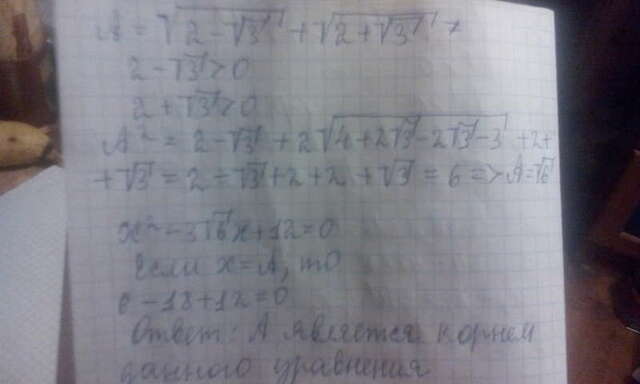 A = √(2 - √3) + √(2 + √3)
2 - √3 > 0
2 + √3 > 0
A² = 2 - √3 + 2√(4 + 2√3 - 2√3 - 3) + 2 +
+ √3 = 2 - √3 + 2 + 2 + √3 = 6 => A = √6
x² - 3√6x + 12 = 0
Если x = A, то
6 - 18 + 12 = 0
Ответ: A является корнем
данного уравнения